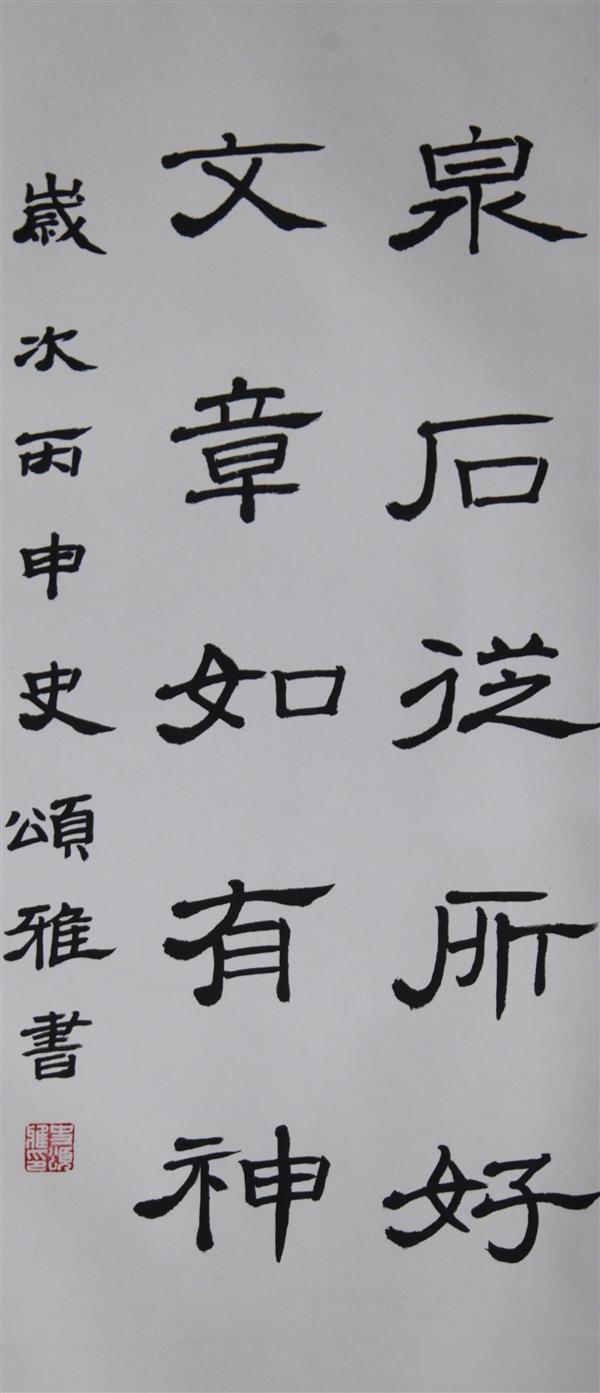 泉石從所好
文章如有神
歲次丙申史頌雅書
史頌雅印